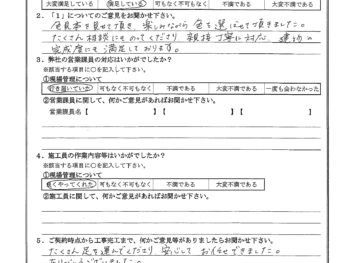 大変満足している 満足している 可もなく不可もなく 不満である 大変不満である
2．「1」についてのご意見をお聞かせ下さい。
色見本を見せて頂き、楽しみながら色を選ばせて頂きました。
たくさん相談にものってくださり 親切丁寧に対応 建物の
完成度にも満足しております。
3．弊社の営業課員の対応はいかがでしたか？
※該当する項目に○を記入して下さい。
①現場管理について
行き届いていた 可もなく不可もなく 不満である 大変不満である 一度も会わなかった
②営業課員に関して、何かご意見があればお聞かせ下さい。
営業課員名【 】【 】【 】
4．施工員の作業内容等はいかがでしたか？
※該当する項目に○を記入して下さい。
①現場管理について
良くやってくれた 可もなく不可もなく 不満である 大変不満である
②施工員に関して、何かご意見があればお聞かせ下さい。
5．ご契約時点から工事完工まで、何かご意見等がありましたらお聞かせ下さい。
たくさん足を運んでくださり 安心して お任せできました。
ありがとうございました。